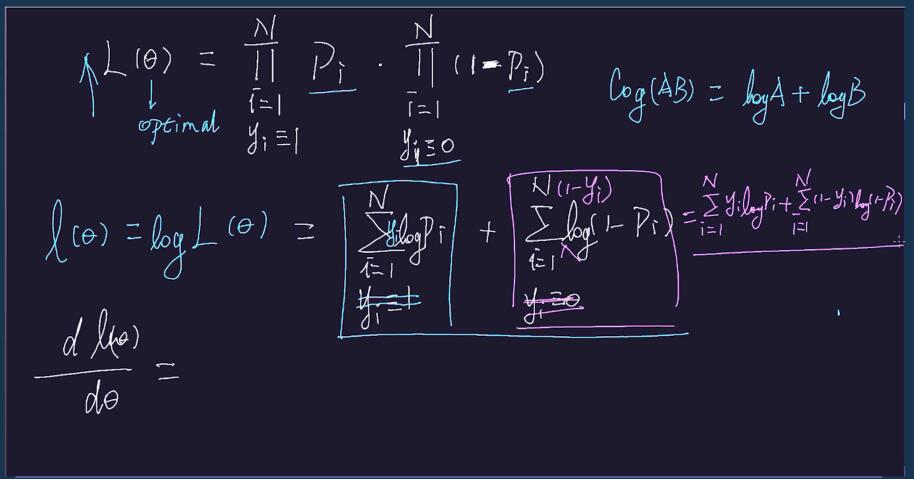 L(θ) = ∏_{i=1, y_i≡1}^{N} P_i · ∏_{i=1, y_i≡0}^{N} (1-P_i)
optimal
Log(AB) = logA + logB
l(θ) = log L(θ) = ∑_{i=1}^{N} y_i log P_i + ∑_{i=1}^{N} (1-y_i) log(1-P_i) = ∑_{i=1}^{N} y_i log P_i + ∑_{i=1}^{N} (1-y_i) log(1-P_i)
y_i=1 y_i=0
d l(θ)
/ dθ =